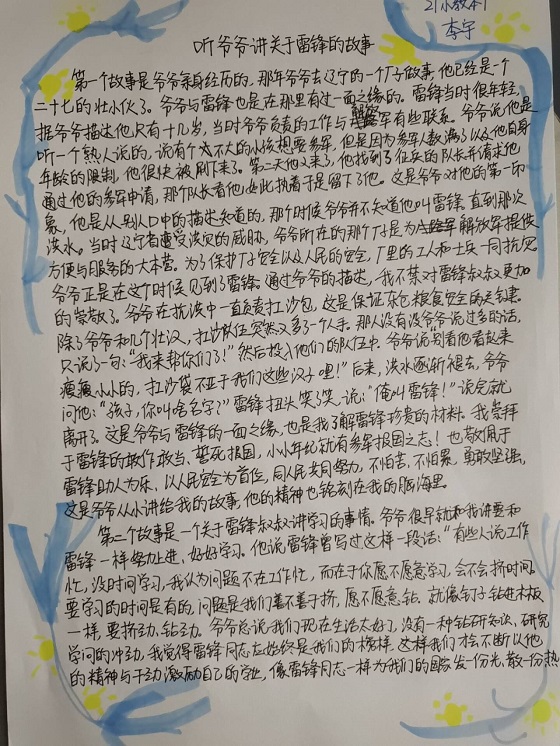 21小教本1
李宇
听爷爷讲关于雷锋的故事
第一个故事是爷爷亲身经历的，那年爷爷去辽宁的一个厂子做事，他已经是一个
二十七的壮小伙了。爷爷与雷锋也是在那里有过一面之缘的。雷锋当时很年轻，
据爷爷描述他只有十几岁，当时爷爷负责的工作与军有些联系。爷爷说他是
听一个熟人说的，说有个不大的小孩想要参军，但是因为参军人数满了以及他自身
年龄的限制，他很快被刷下来了。第二天他又来了，他找到了征兵的队长并请求他
通过他的参军申请，那个队长看他如此执着于是留下了他。这是爷爷对他的第一印
象，他是从别人口中的描述知道的，那个时候爷爷并不知道他叫雷锋，直到那次
洪水。当时辽宁省遭受洪灾的威胁，爷爷所在的那个厂是为解放军提供
方便与服务的大本营。为了保护厂子安全以及人民的安全，厂里的工人和士兵一同抗灾。
爷爷正是在这个时候见到了雷锋。通过爷爷的描述，我不禁对雷锋叔叔更加
的崇敬了。爷爷在抗洪中一直负责扛沙包，这是保证灰包粮食安全的关键。
除了爷爷和几个壮汉，扛沙队伍突然又多了一个人手。那人没有没爷爷说过多的话，
只说了一句：“我来帮你们了！”然后投入他们的队伍中。爷爷说别看他看起来
瘦瘦小小的，扛沙袋不亚于我们这些汉子哩！”后来，洪水逐渐褪去，爷爷
问他：“孩子，你叫啥名字？”雷锋扭头笑了笑说：“俺叫雷锋！”说完就
离开了。这是爷爷与雷锋的一面之缘，也是我了解雷锋珍贵的材料。我崇拜
于雷锋的敢作敢当、誓死报国，小小年纪就有参军报国之志！也敬佩于
雷锋助人为乐、以人民安全为首位，同人民共同努力，不怕苦、不怕累，勇敢坚强，
这是爷爷从小讲给我的故事，他的精神也铭刻在我的脑海里。
第二个故事是一个关于雷锋叔叔讲学习的事情。爷爷很早就和我讲要和
雷锋一样努力上进、好好学习。他说雷锋曾写过这样一段话：“有些人说工作
忙，没时间学习，我认为问题不在工作忙，而在于你愿不愿意学习，会不会挤时间。
要学习的时间是有的，问题是我们善不善于挤，愿不愿意钻。就像钉子钻进木板
一样，要挤劲、钻劲。爷爷总说我们现在生活太好了，没有一种钻研知识、研究
学问的冲劲，我觉得雷锋同志应始终是我们的榜样，这样我们才会不断以他
的精神与干劲激励自己的学业，像雷锋同志一样为我们的国家发一份光、散一份热